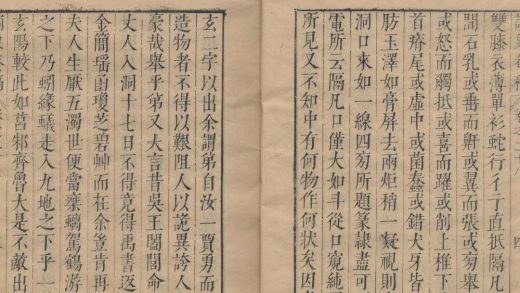 雙膝衣薄單衫蛇行彳亍直抵隔凡
間石乳或垂而或翼而張或旁舉
或怒而觸抵或喜而躍或削上椎下
首瘠尾或虛中或菌蠢或錯犬牙皆
肪玉澤如膏屏去兩炬稍一凝視則
洞口來如一線四旁所題篆隸盡可
電所云隔凡口僅大如斗從口窺純
所見又不知中有何物作何狀矣因
玄二字以出余謂弟自汝一賈勇而
造物者不得以艱阻人以詭異誇人
豪哉舉乎弟又大言昔吳王闔閭命
丈人入洞十七日不得竟得禹書返
金簡瑶函瓊芝碧艸而在余豈肯再
夫人生厭五濁世便當乘螭駕鶴游
之下乃蚓緣蟻走入九地之下乎一
玄陽較此如莒邾齊魯大是不敵出